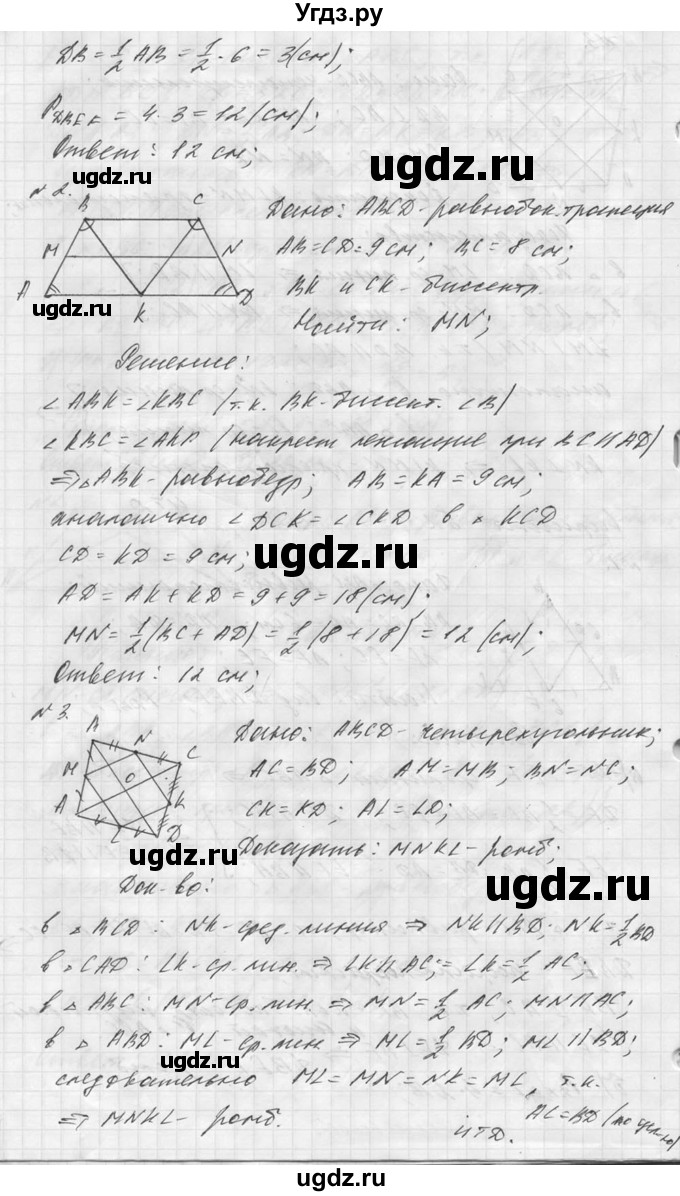 Угдз.ру
ДВ = 1/2 АВ = 1/2 · 6 = 3(см);
= 4 · 3 = 12 (см);
Ответ: 12 см;
№ 2.
Дано: ABCD - равнобок. трапеция
B C
AB = CD = 9 см; BC = 8 см;
M N
BK и CK - биссектр.
A K D
ugdz.ru
Найти: MN;
Решение:
∠ABK = ∠KBC (т.к. BK - биссект. ∠B)
∠KBC = ∠AKB (накрест лежащие при BC || AD)
⇒ △ABK - равнобедр; AB = KA = 9 см;
аналогично ∠DCK = ∠CKD в △ KCD
CD = KD = 9 см;
ugdz.ru
AD = AK + KD = 9 + 9 = 18 (см);
MN = 1/2 (BC + AD) = 1/2 (8 + 18) = 12 (см);
Ответ: 12 см;
ugdz.ru
№ 3.
Дано: ABCD - четырехугольник;
B N C
AC = BD; AM = MB; BN = NC;
M O K
A L D
CK = KD; AL = LD;
Доказать: MNKL - ромб;
ugdz.ru
Док-во:
в △ BCD: NK - сред. линия ⇒ NK || BD; NK = 1/2 BD
в △ CAD: LK - ср. лин. ⇒ LK || AC; = LK = 1/2 AC;
в △ ABC: MN - ср. лин. ⇒ MN = 1/2 AC; MN || AC;
в △ ABD: ML - ср. лин. ⇒ ML = 1/2 BD; ML || BD;
ugdz.ru
следвательно ML = MN = NK = ML, т.к.
⇒ MNKL - ромб. AC = BD (по усл-ю)
чтд.
ugdz.ru